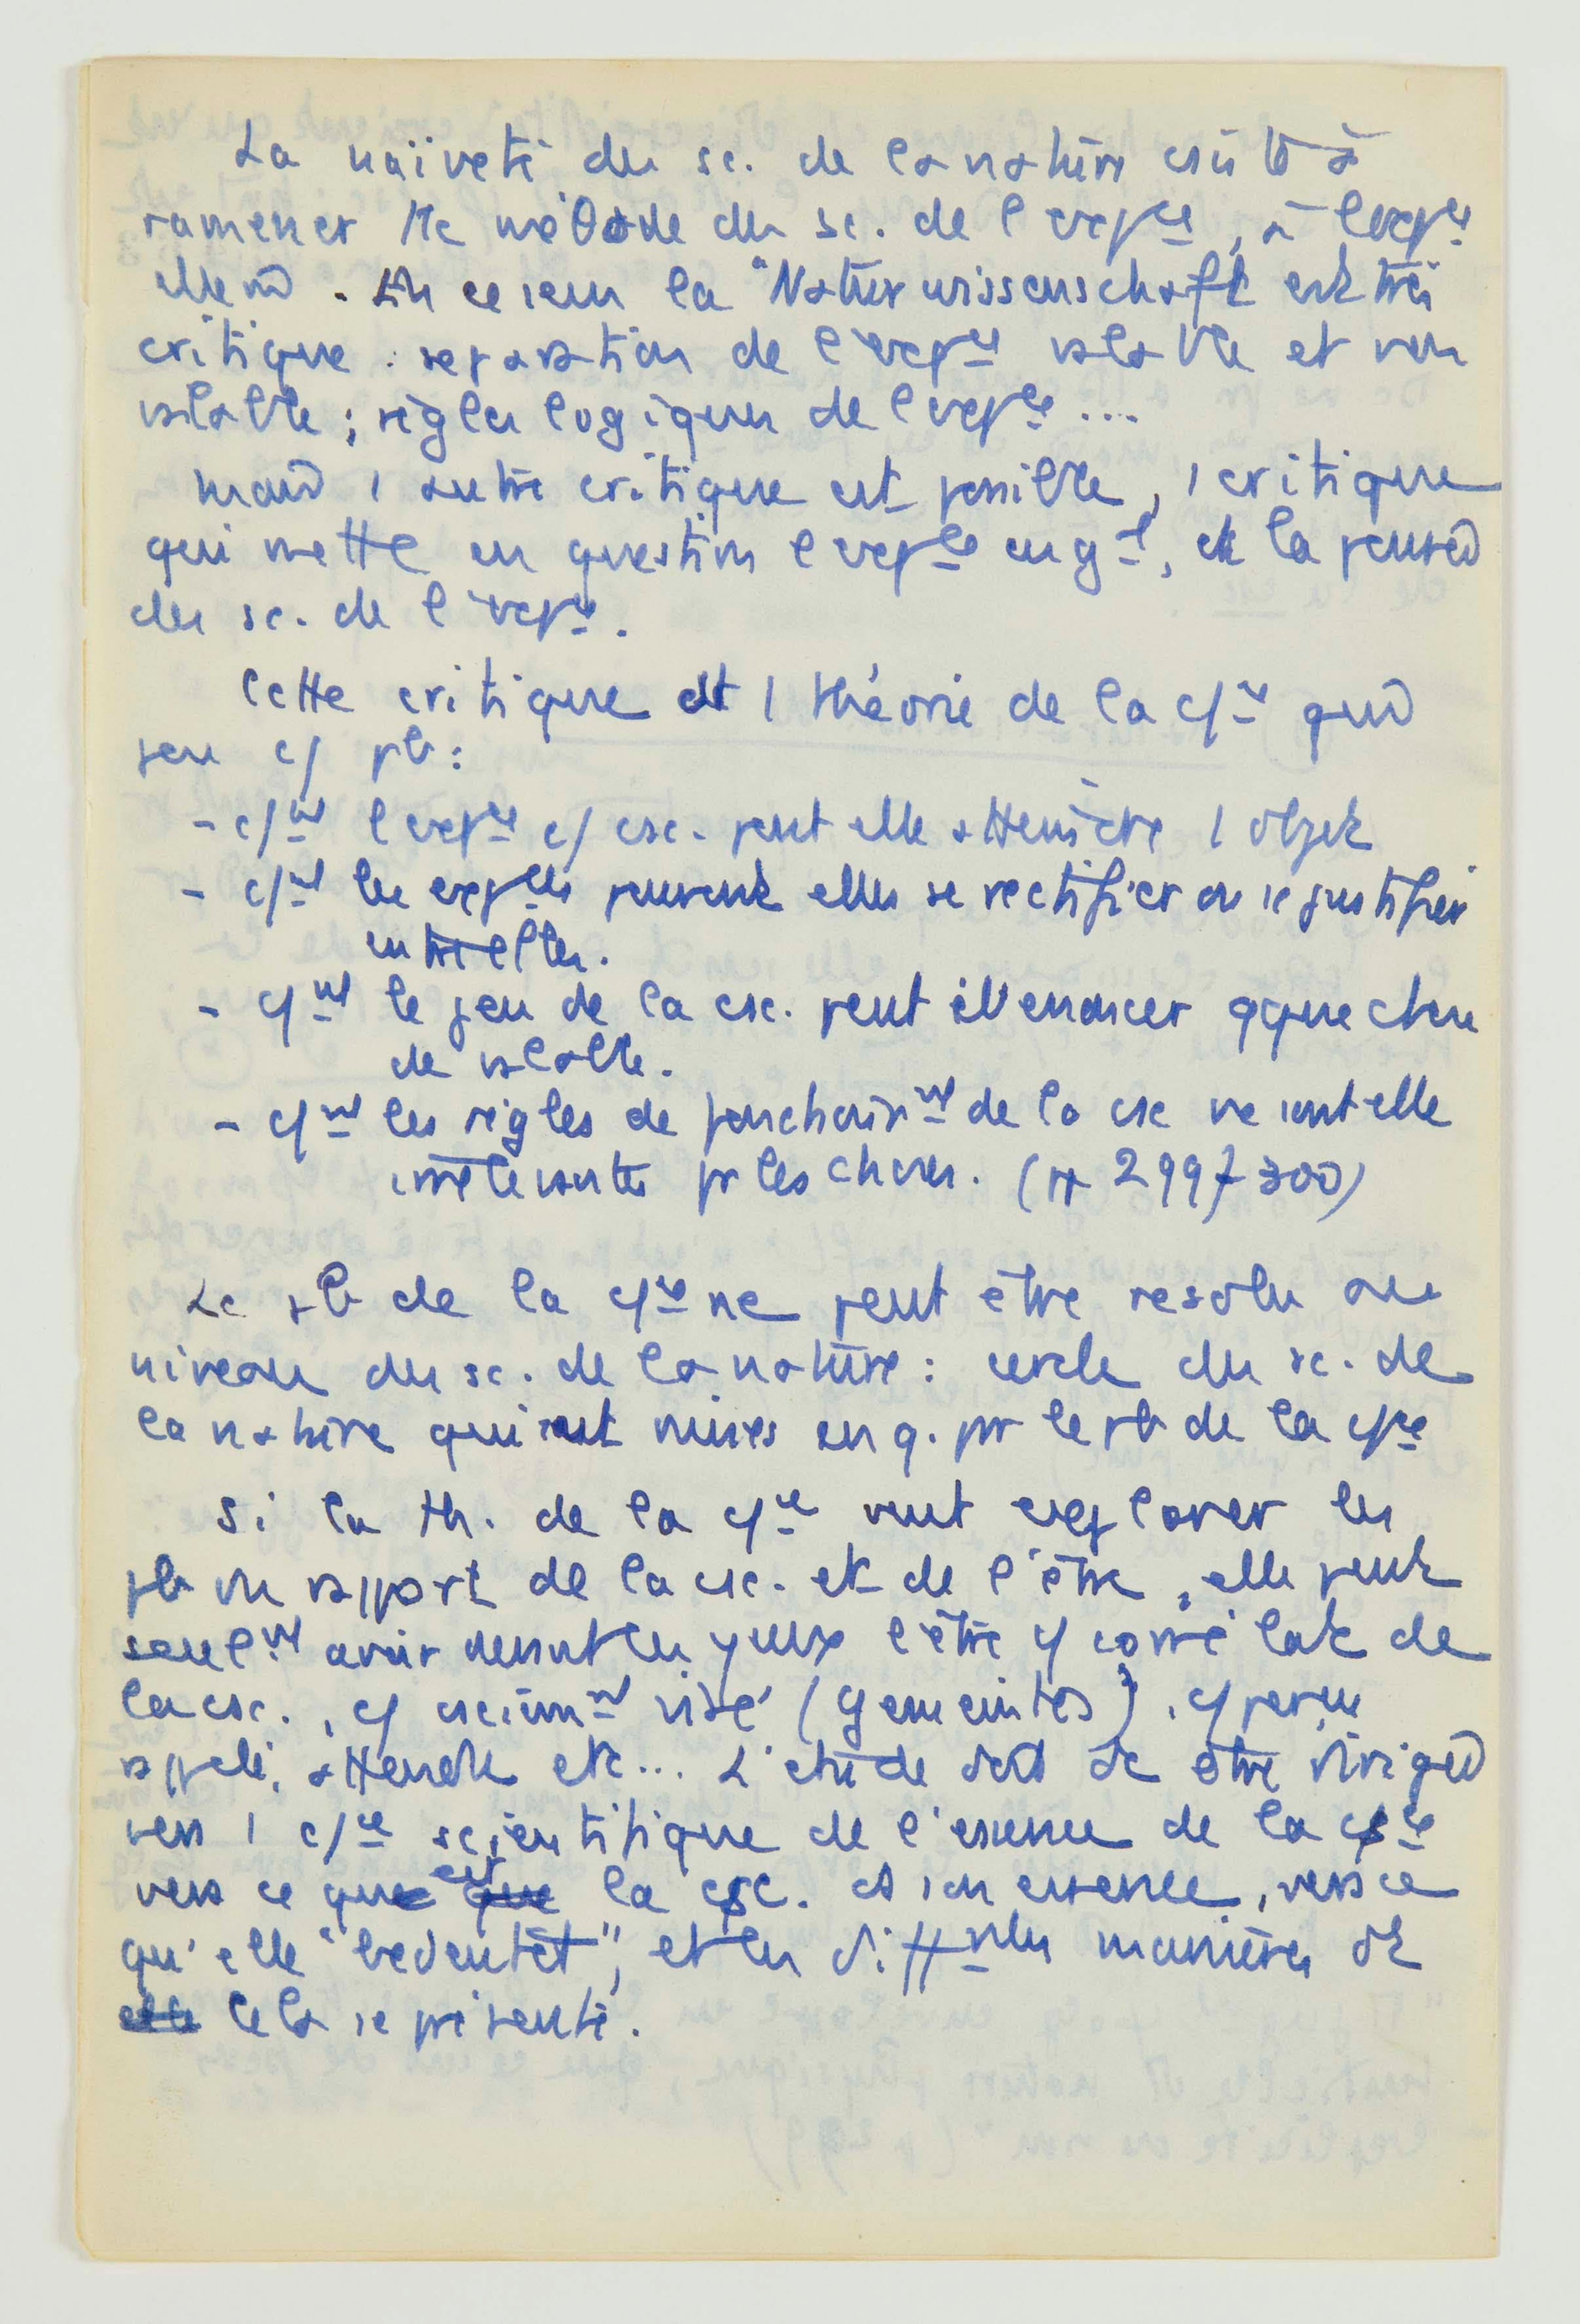 La naïveté des sc. de la nature csiste à
ramener tte méthode des sc. de l'expce, à l'expce
elle m̂. En ce sens la "Naturwissenschaft est très
critique : séparation de l'expce valable et non
valable ; règles logiques de l'expce ...
mais 1 autre critique est possible, 1 critique
qui mette en question l'expce en gal, et la pensée
des sc. de l'expce.
Cette critique est 1 théorie de la c/ce qui
pose c/ pb :
- c/nt l'expce c/ csc. peut elle atteindre 1 objet
- c/nt les expces peuvent elles se rectifier ou se justifier
entre elles.
- c/nt le jeu de la csc. peut énoncer qque chose
de valable.
- c/nt les règles de la csc ne sont elle
pr les choses. (pp 299 7 300)
Le pb de la c/ce ne peut être résolu au
niveau des sc. de la nature : cercle des sc. de
la nature qui sont mises en q. pr le pb de la c/ce
Si la th. de la c/ce veut explorer les
pb du rapport de la csc. et de l'être, elle peut
seulnt avoir devant les yeux l'être c/ corrélat de
la csc., c/ csciemnt visé (gemeintes), c/ perçu
rappelé, attendu etc... L'étude doit dc être dirigée
vers 1 c/ce scientifique de l'essence de la csce
vers ce que est la csc. ds son essence, vers ce
qu'elle "bedeutet", et les difftes manières dt
cela se présente.